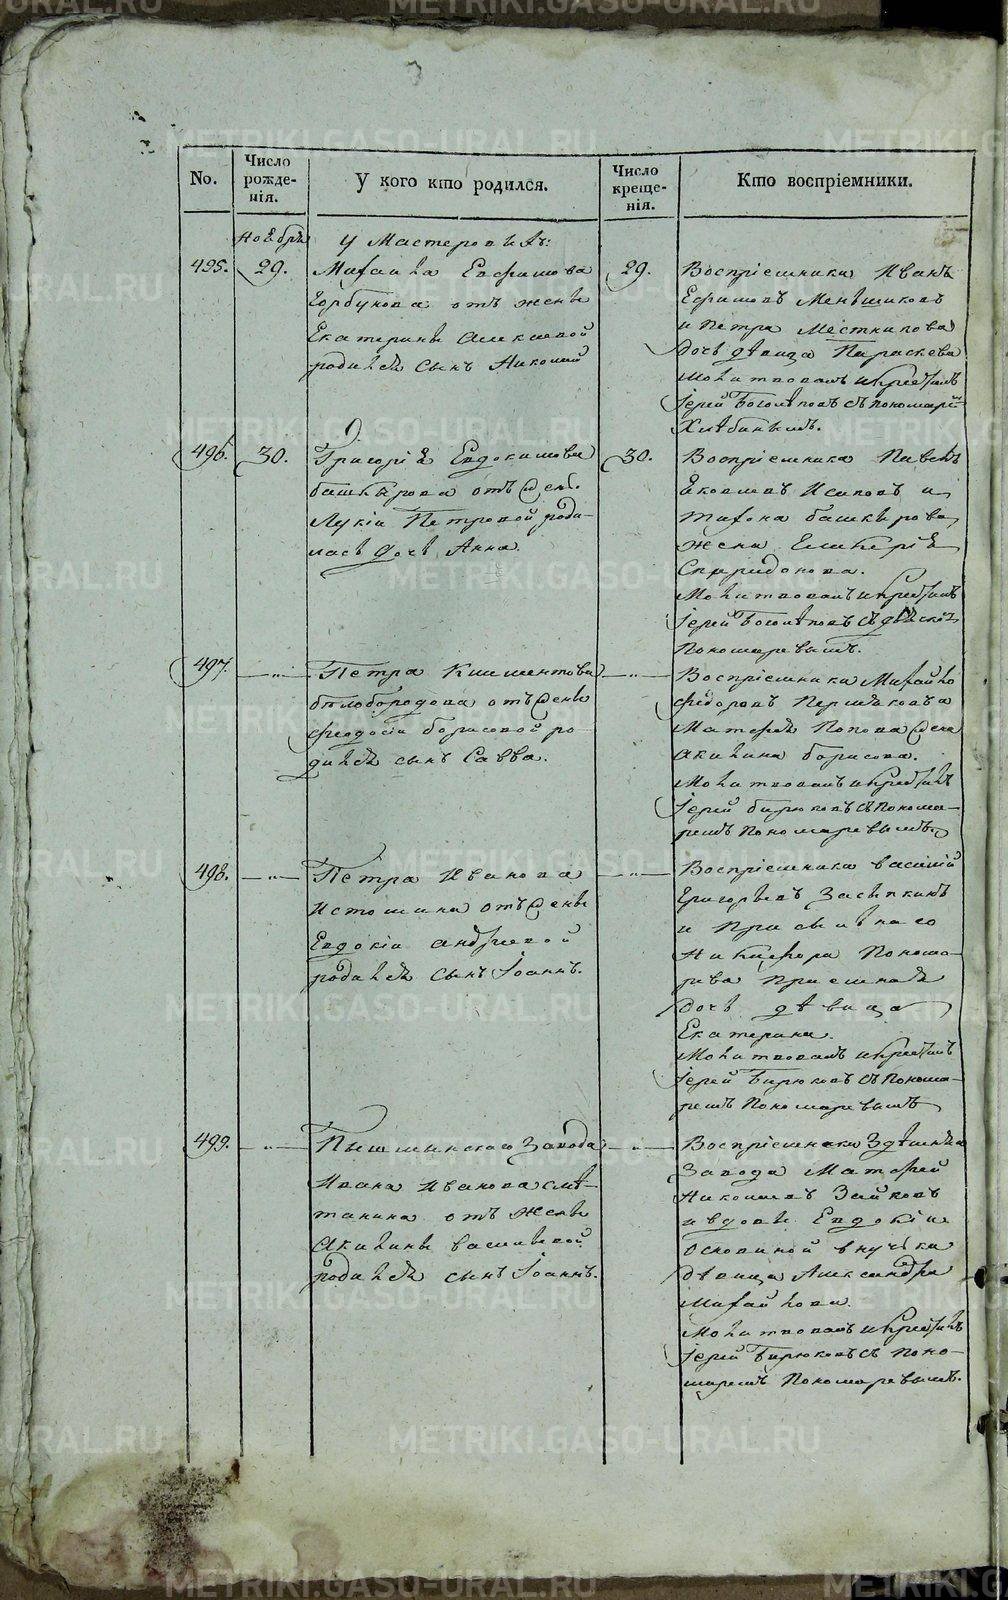 No.
Число рожде-
нія.
У кого кто родился.
Число креще-
нія.
Кто воспріемники.
Ноября
У Мастеровыхъ:
495.
29.
Михаила Евфимова
Горбунова отъ жены
Екатерины Алексеевой
родился сынъ Николай
29.
Воспріемники Иванъ
Ефимовъ Меньшиковъ
и Петра Местникова
дочь девица Параскева
Молитвовалъ и крестилъ
Іерей Боголеповъ съ пономаремъ
Хлебинымъ.
496.
30.
Григорія Евдокимова
башкирова отъ жены
Лукіи Петровой роди-
лась дочь Анна.
30.
Воспріемники Павелъ
Яковлевъ Исаковъ и
Тихона башкирова
жена Гликерія
Спиридонова.
Молитвовалъ и крестилъ
Іерей Боголеповъ съ дьячкомъ
Пономаревымъ.
497.
—„—
Петра Климентова
белобородова отъ жены
Феодосіи борисовой ро-
дился сынъ Савва.
—„—
Воспріемники Михайло
Федоровъ Пермяковъ и
Матфея Попова жена
Акилина борисова.
Молитвовалъ и крестилъ
Іерей бирюковъ съ Понома-
ремъ Пономаревымъ.
498.
—„—
Петра Иванова
Истомина отъ жены
Евдокіи Андреевой
родился сынъ Іоаннъ.
—„—
Воспріемники Василій
Григорьевъ Засыпкинъ
и Присыльнаго
Никифора Понома-
рева Пріемная
дочь девица
Екатерина.
Молитвовалъ и крестилъ
Іерей Бирюковъ съ Понома-
ремъ Пономаревымъ
499.
—„—
Пышминскаго Завода
Ивана Иванова сме-
танина отъ жены
Акилины васильевой
родился сынъ Іоаннъ.
—„—
Воспріемники Здешняго
Завода Матфей
Николаевъ Зайковъ
и вдовы Евдокіи
Осковиной внучка
девица Александра
Михайлова.
Молитвовалъ и крестилъ
Іерей Бирюковъ съ Поно-
маремъ Пономаревымъ.
METRIKI.GASO-URAL.RU